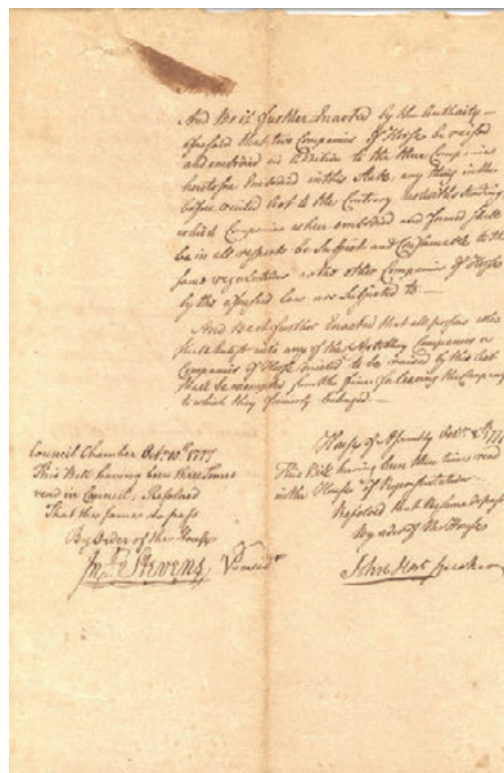 And be it further Enacted by the Authority
aforesaid that two Companies of Horse be raised
and embodied in Addition to the three Companies
heretofore Embodied in this State, any thing in the
before recited Act to the Contrary notwithstanding
which Companies when embodied and formed shall
be in all respects be Subject and Conformable to the
same regulations as the other Companies of Horse
by the aforesaid law are Subjected to.—
And be it further Enacted that all persons who
shall enlist into any of the Artillery Companies or
Companies of Horse directed to be raised by this Act
shall be exempted from the fines for leaving the Company
to which they formerly belonged.—
Council Chamber Octr. 10th. 1777
This Bill having been three times
read in Council, Resolved
That the same do pass
By Order of the House
Jno. Stevens,
House of Assembly Octr. 1777
This Bill having been three times read
in the House of Representatives
Resolved that the same do pass
By order of the House
John Hart Speaker